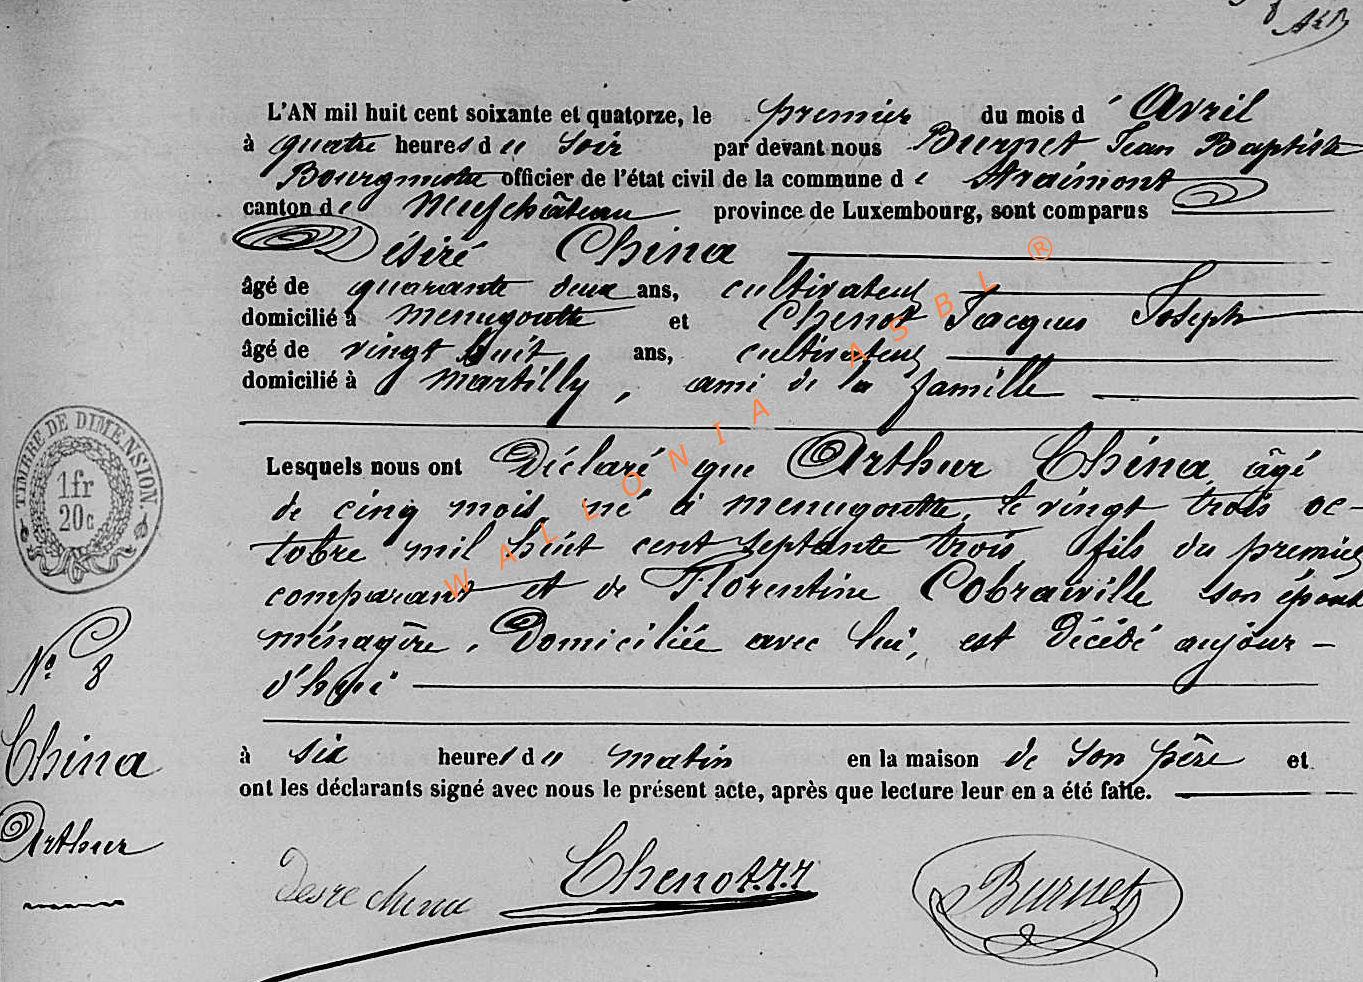 L'AN mil huit cent soixante et quatorze, le premier du mois d'Avril
à quatre heures du soir par devant nous Burnet Jean Baptiste
Bourgmestre officier de l'état civil de la commune de Straimont
canton de Neufchâteau province de Luxembourg, sont comparus
Désiré China
âgé de quarante deux ans, cultivateur
domicilié à Menugoutte et Chenot Jacques Joseph
âgé de vingt huit ans, cultivateur
domicilié à Martilly, ami de la famille
Lesquels nous ont Déclaré que Arthur China, âgé
de cinq mois, né à Menugoutte, le vingt trois oc-
tobre mil huit cent septante trois fils du premier
comparant et de Florentine Cobraiville son épouse
ménagère, Domiciliée avec lui, est Décédé aujour-
d'hui
à six heures du matin en la maison de son père et
ont les déclarants signé avec nous le présent acte, après que lecture leur en a été faite.
Desire china Chenot J.J Burnet
TIMBRE DE DIMENSION.
1fr
20c
N° 8
China
Arthur
WALLONIA ASBL ®